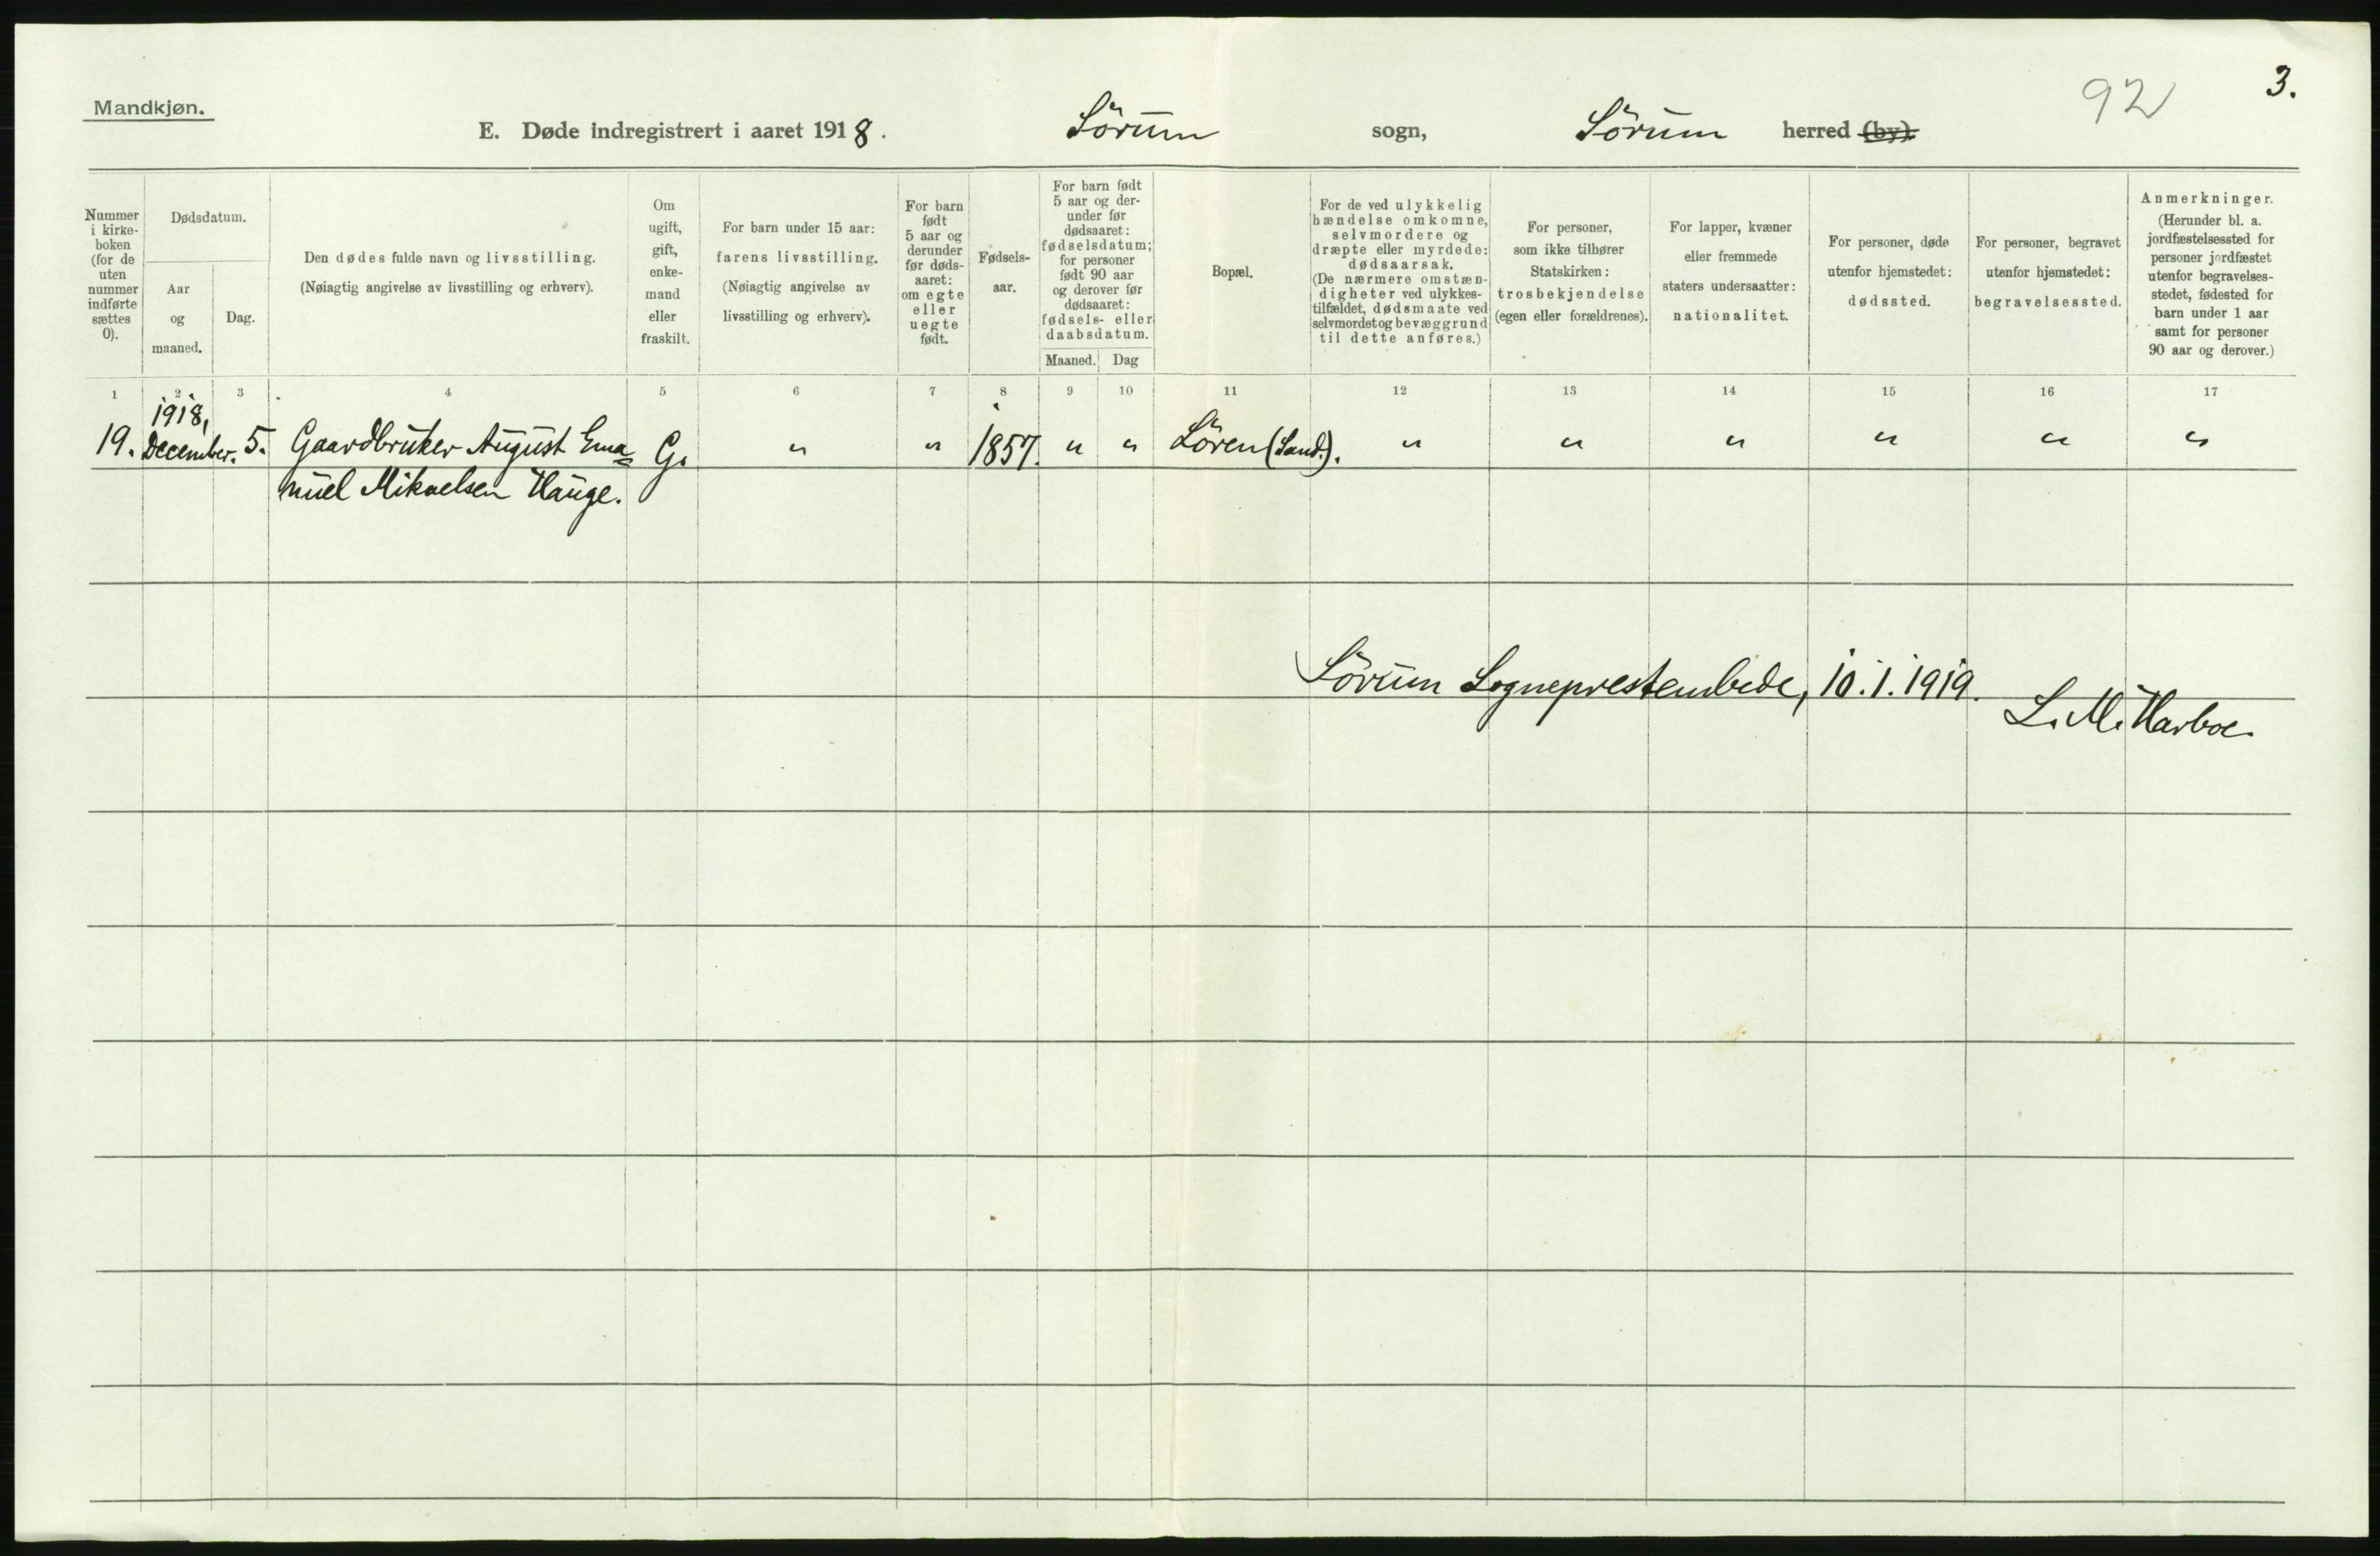 92
3.
Mandkjøn.
E. Døde indregistrert i aaret 1918. Sörum sogn, Sörum herred (by).
Nummer
i kirke-
boken
(for de
uten
nummer
indførte
sættes
0).
Dødsdatum.
Aar
og
maaned.
Dag.
Den dødes fulde navn og livsstilling.
(Nøiagtig angivelse av livsstilling og erhverv).
Om
ugift,
gift,
enke-
mand
eller
fraskilt.
For barn under 15 aar:
farens livsstilling.
(Nøiagtig angivelse av
livsstilling og erhverv).
For barn
født
5 aar og
derunder
før døds-
aaret:
om egte
eller
uegte
født.
Fødsels-
aar.
For barn født
5 aar og der-
under før
dødsaaret:
fødselsdatum;
for personer
født 90 aar
og derover før
dødsaaret:
fødsels- eller
daabsdatum.
Maaned. Dag
Bopæl.
For de ved ulykkelig
hændelse omkomne,
selvmordere og
dræpte eller myrdede:
dødsaarsak.
(De nærmere omstæn-
digheter ved ulykkes-
tilfældet, dødsmaate ved
selvmordet og bevæggrund
til dette anføres.)
For personer,
som ikke tilhører
Statskirken:
trosbekjendelse
(egen eller forældrenes).
For lapper, kvæner
eller fremmede
staters undersaatter:
nationalitet.
For personer, døde
utenfor hjemstedet:
dødssted.
For personer, begravet
utenfor hjemstedet:
begravelsessted.
Anmerkninger.
(Herunder bl. a.
jordfæstelsessted for
personer jordfæstet
utenfor begravelses-
stedet, fødested for
barn under 1 aar
samt for personer
90 aar og derover.)
1 2 3 4 5 6 7 8 9 10 11 12 13 14 15 16 17
1918,
19. December. 5. Gaardbruker August Ema= G. " " 1857. " " Lören (Sand.). " " " " " "
nuel Mikaelsen Hauge.
Sörum Sogneprestembede, 10.1.1919.
L. M. Harboe.